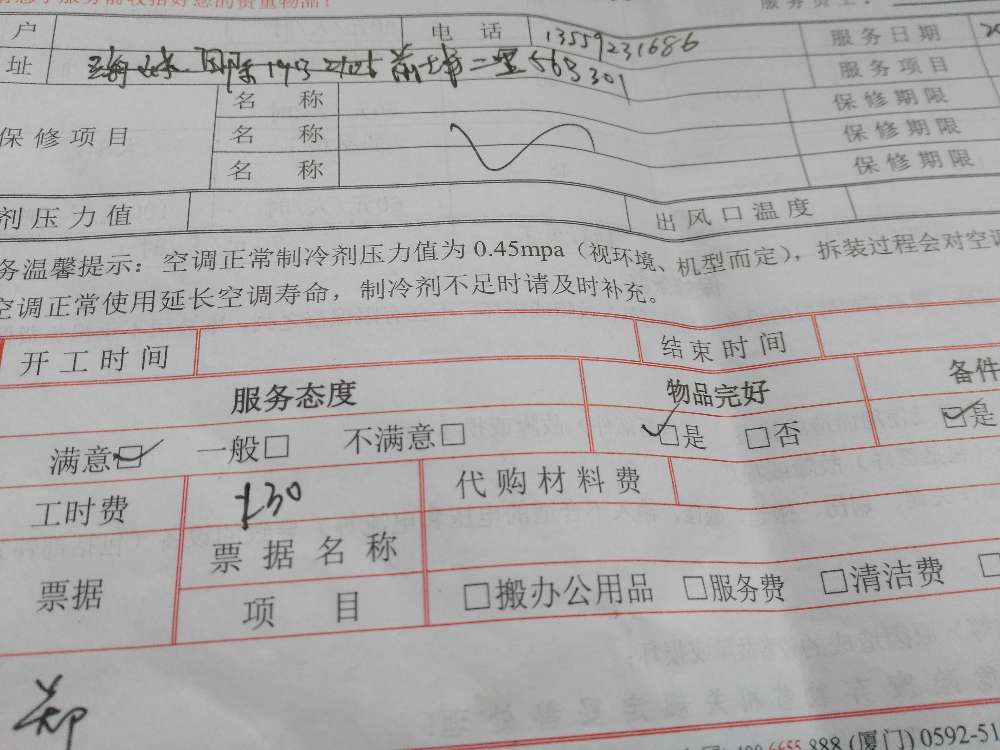 服务前收拾好您的贵重物品！
户 电 话 13559231686 服务日期
址 服务项目
名 称 保修期限
保修项目 名 称 保修期限
名 称 保修期限
剂压力值 出风口温度
务温馨提示：空调正常制冷剂压力值为0.45mpa（视环境、机型而定），拆装过程会对空调
空调正常使用延长空调寿命，制冷剂不足时请及时补充。
开工时间 结束时间
服务态度 物品完好 备件
满意☑ 一般□ 不满意□ ☑是 □否 ☑是
工时费 130 代购材料费
票据 票据名称
项 目 □搬办公用品 □服务费 □清洁费 □
郑
6655 888 (厦门) 0592-51